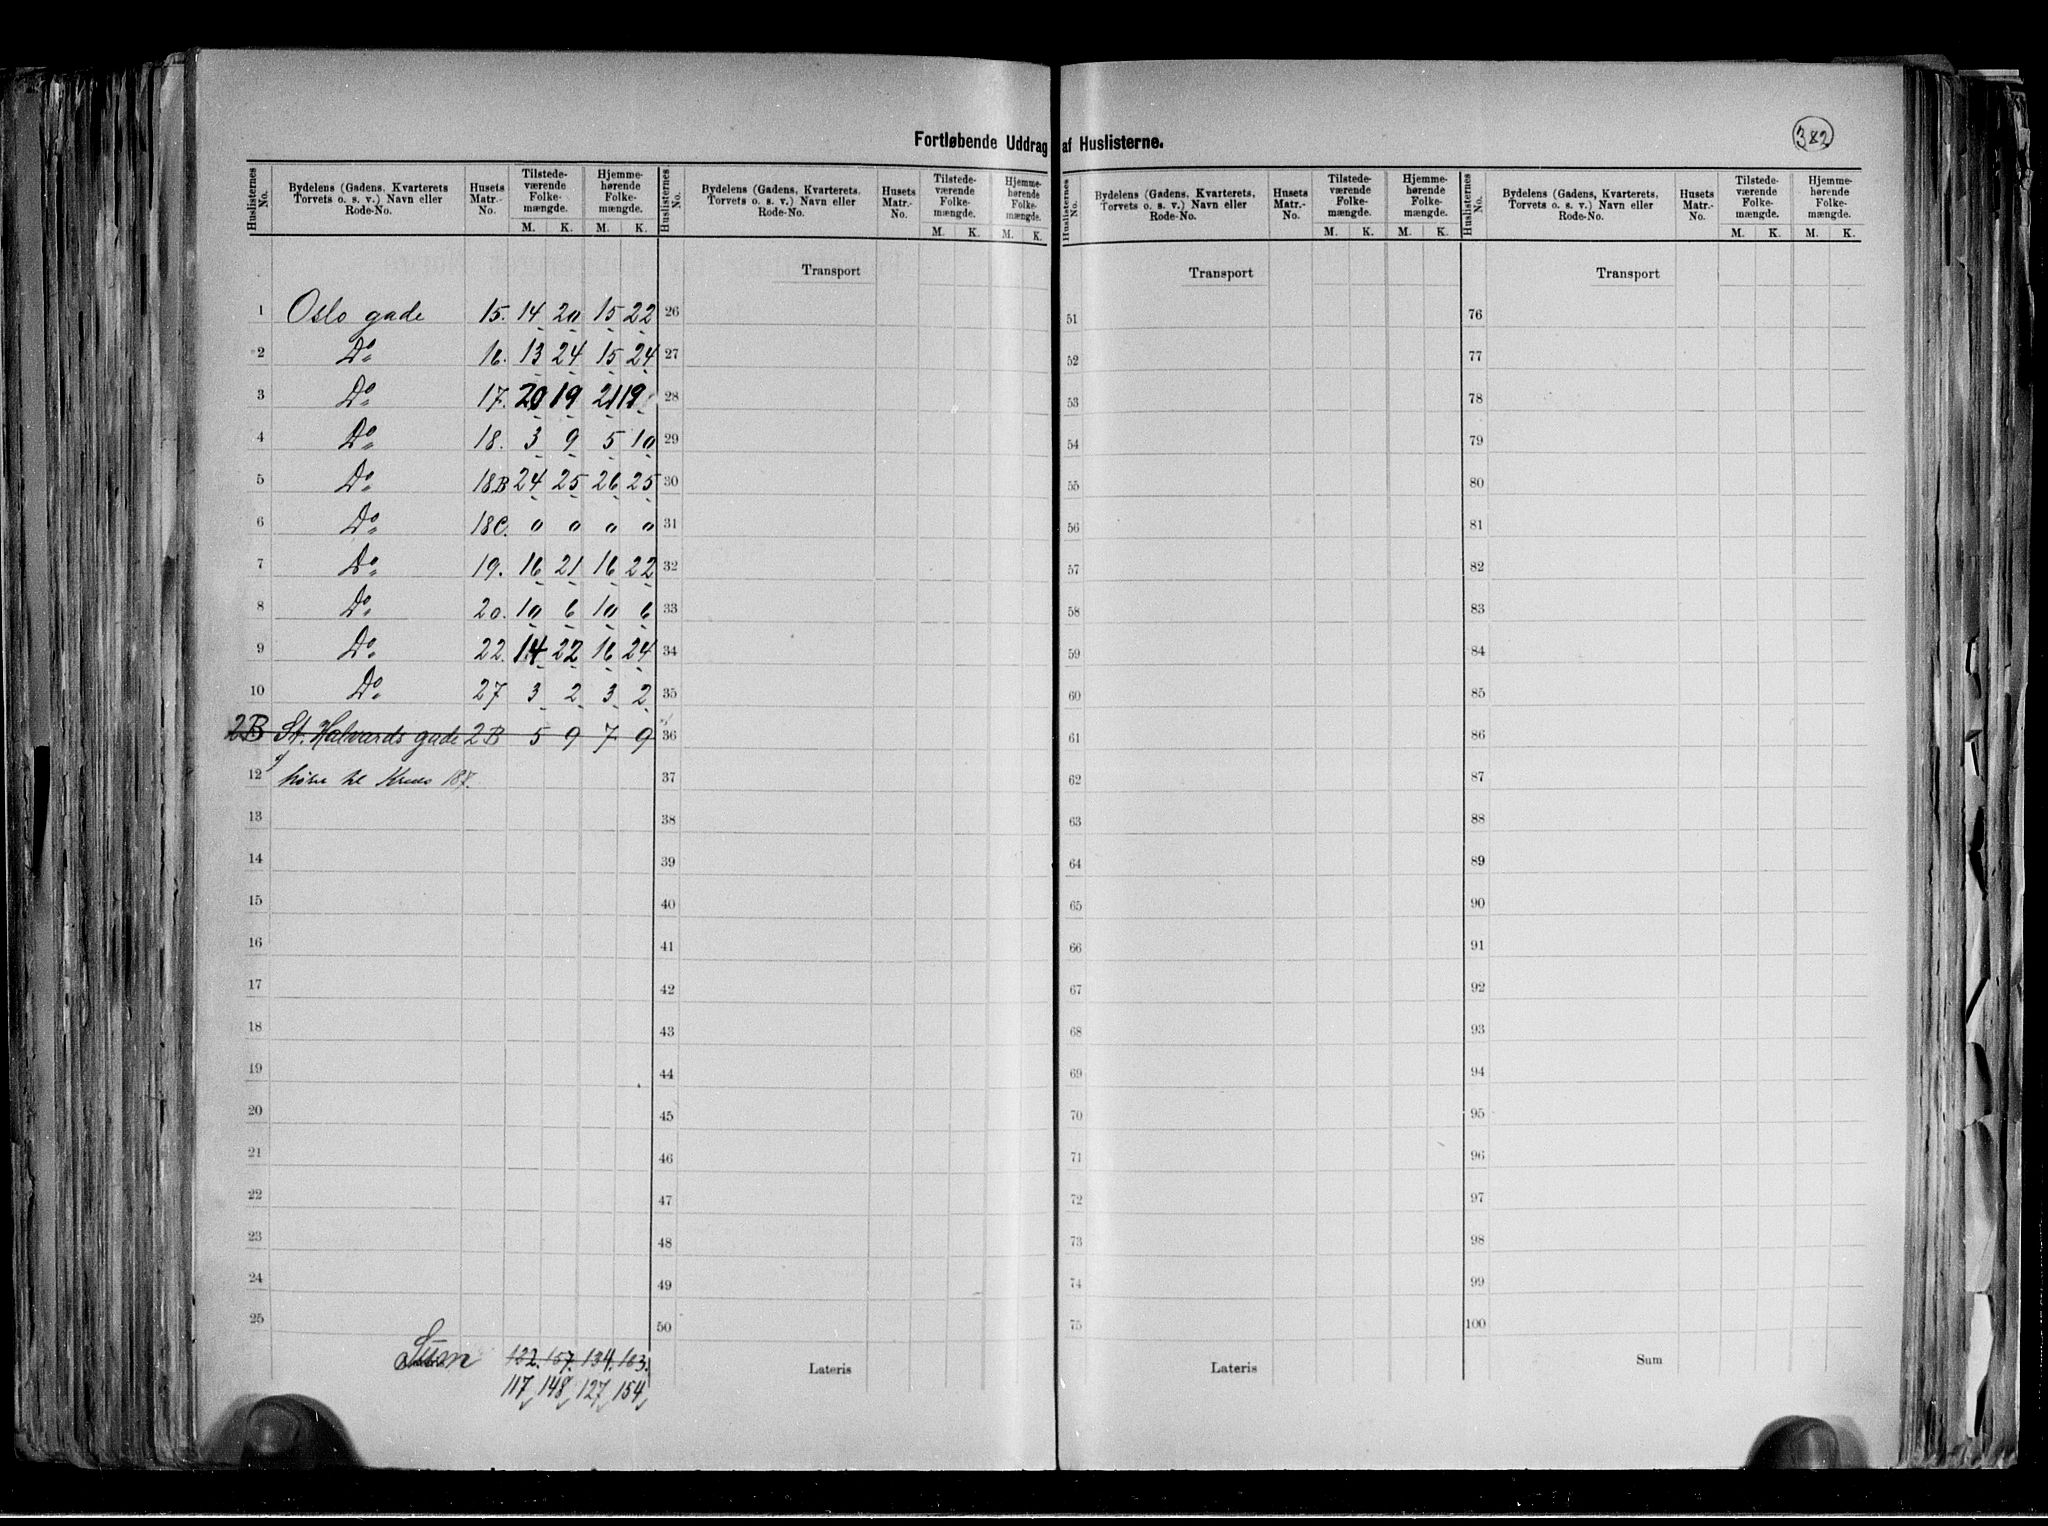 382
Fortløbende Uddrag af Huslisterne.
Huslisternes No. Bydelens (Gadens, Kvarterets Torvets o. s. v.) Navn eller Rode-No. Husets Matr.-No. Tilstede-værende Folke-mængde. M. K. Hjemme-hørende Folke-mængde. M. K.
Huslisternes No. Bydelens (Gadens, Kvarterets, Torvets o. s. v.) Navn eller Rode-No. Husets Matr.-No. Tilstede-værende Folke-mængde. M. K. Hjemme-hørende Folke-mængde. M. K.
Huslisternes No. Bydelens (Gadens, Kvarterets, Torvets o. s. v.) Navn eller Rode-No. Husets Matr.-No. Tilstede-værende Folke-mængde. M. K. Hjemme-hørende Folke-mængde. M. K.
Huslisternes No. Bydelens (Gadens, Kvarterets, Torvets o. s. v.) Navn eller Rode-No. Husets Matr.-No. Tilstede-værende Folke-mængde. M. K. Hjemme-hørende Folke-mængde. M. K.
Transport Transport Transport
1 Oslo gade 15. 14 20 15 22 26 51 76
2 Do 16. 13 24 15 24 27 52 77
3 Do 17. 20 19 21 19 28 53 78
4 Do 18. 3 9 5 10 29 54 79
5 Do 18B 24 25 26 25 30 55 80
6 Do 18C. 0 0 0 0 31 56 81
7 Do 19. 16 21 16 22 32 57 82
8 Do 20. 10 6 10 6 33 58 83
9 Do 22. 14 22 16 24 34 59 84
10 Do 27 3 2 3 2 35 60 85
2B St. Halvards gade 2B 5 9 7 9 36 61 86
12 hører til Kreds 187. 37 62 87
13 38 63 88
14 39 64 89
15 40 65 90
16 41 66 91
17 42 67 92
18 43 68 93
19 44 69 94
20 45 70 95
21 46 71 96
22 47 72 97
23 48 73 98
24 49 74 99
25 50 75 100
Sum 122. 157. 134. 163. Lateris Lateris Sum
117 148 127 154